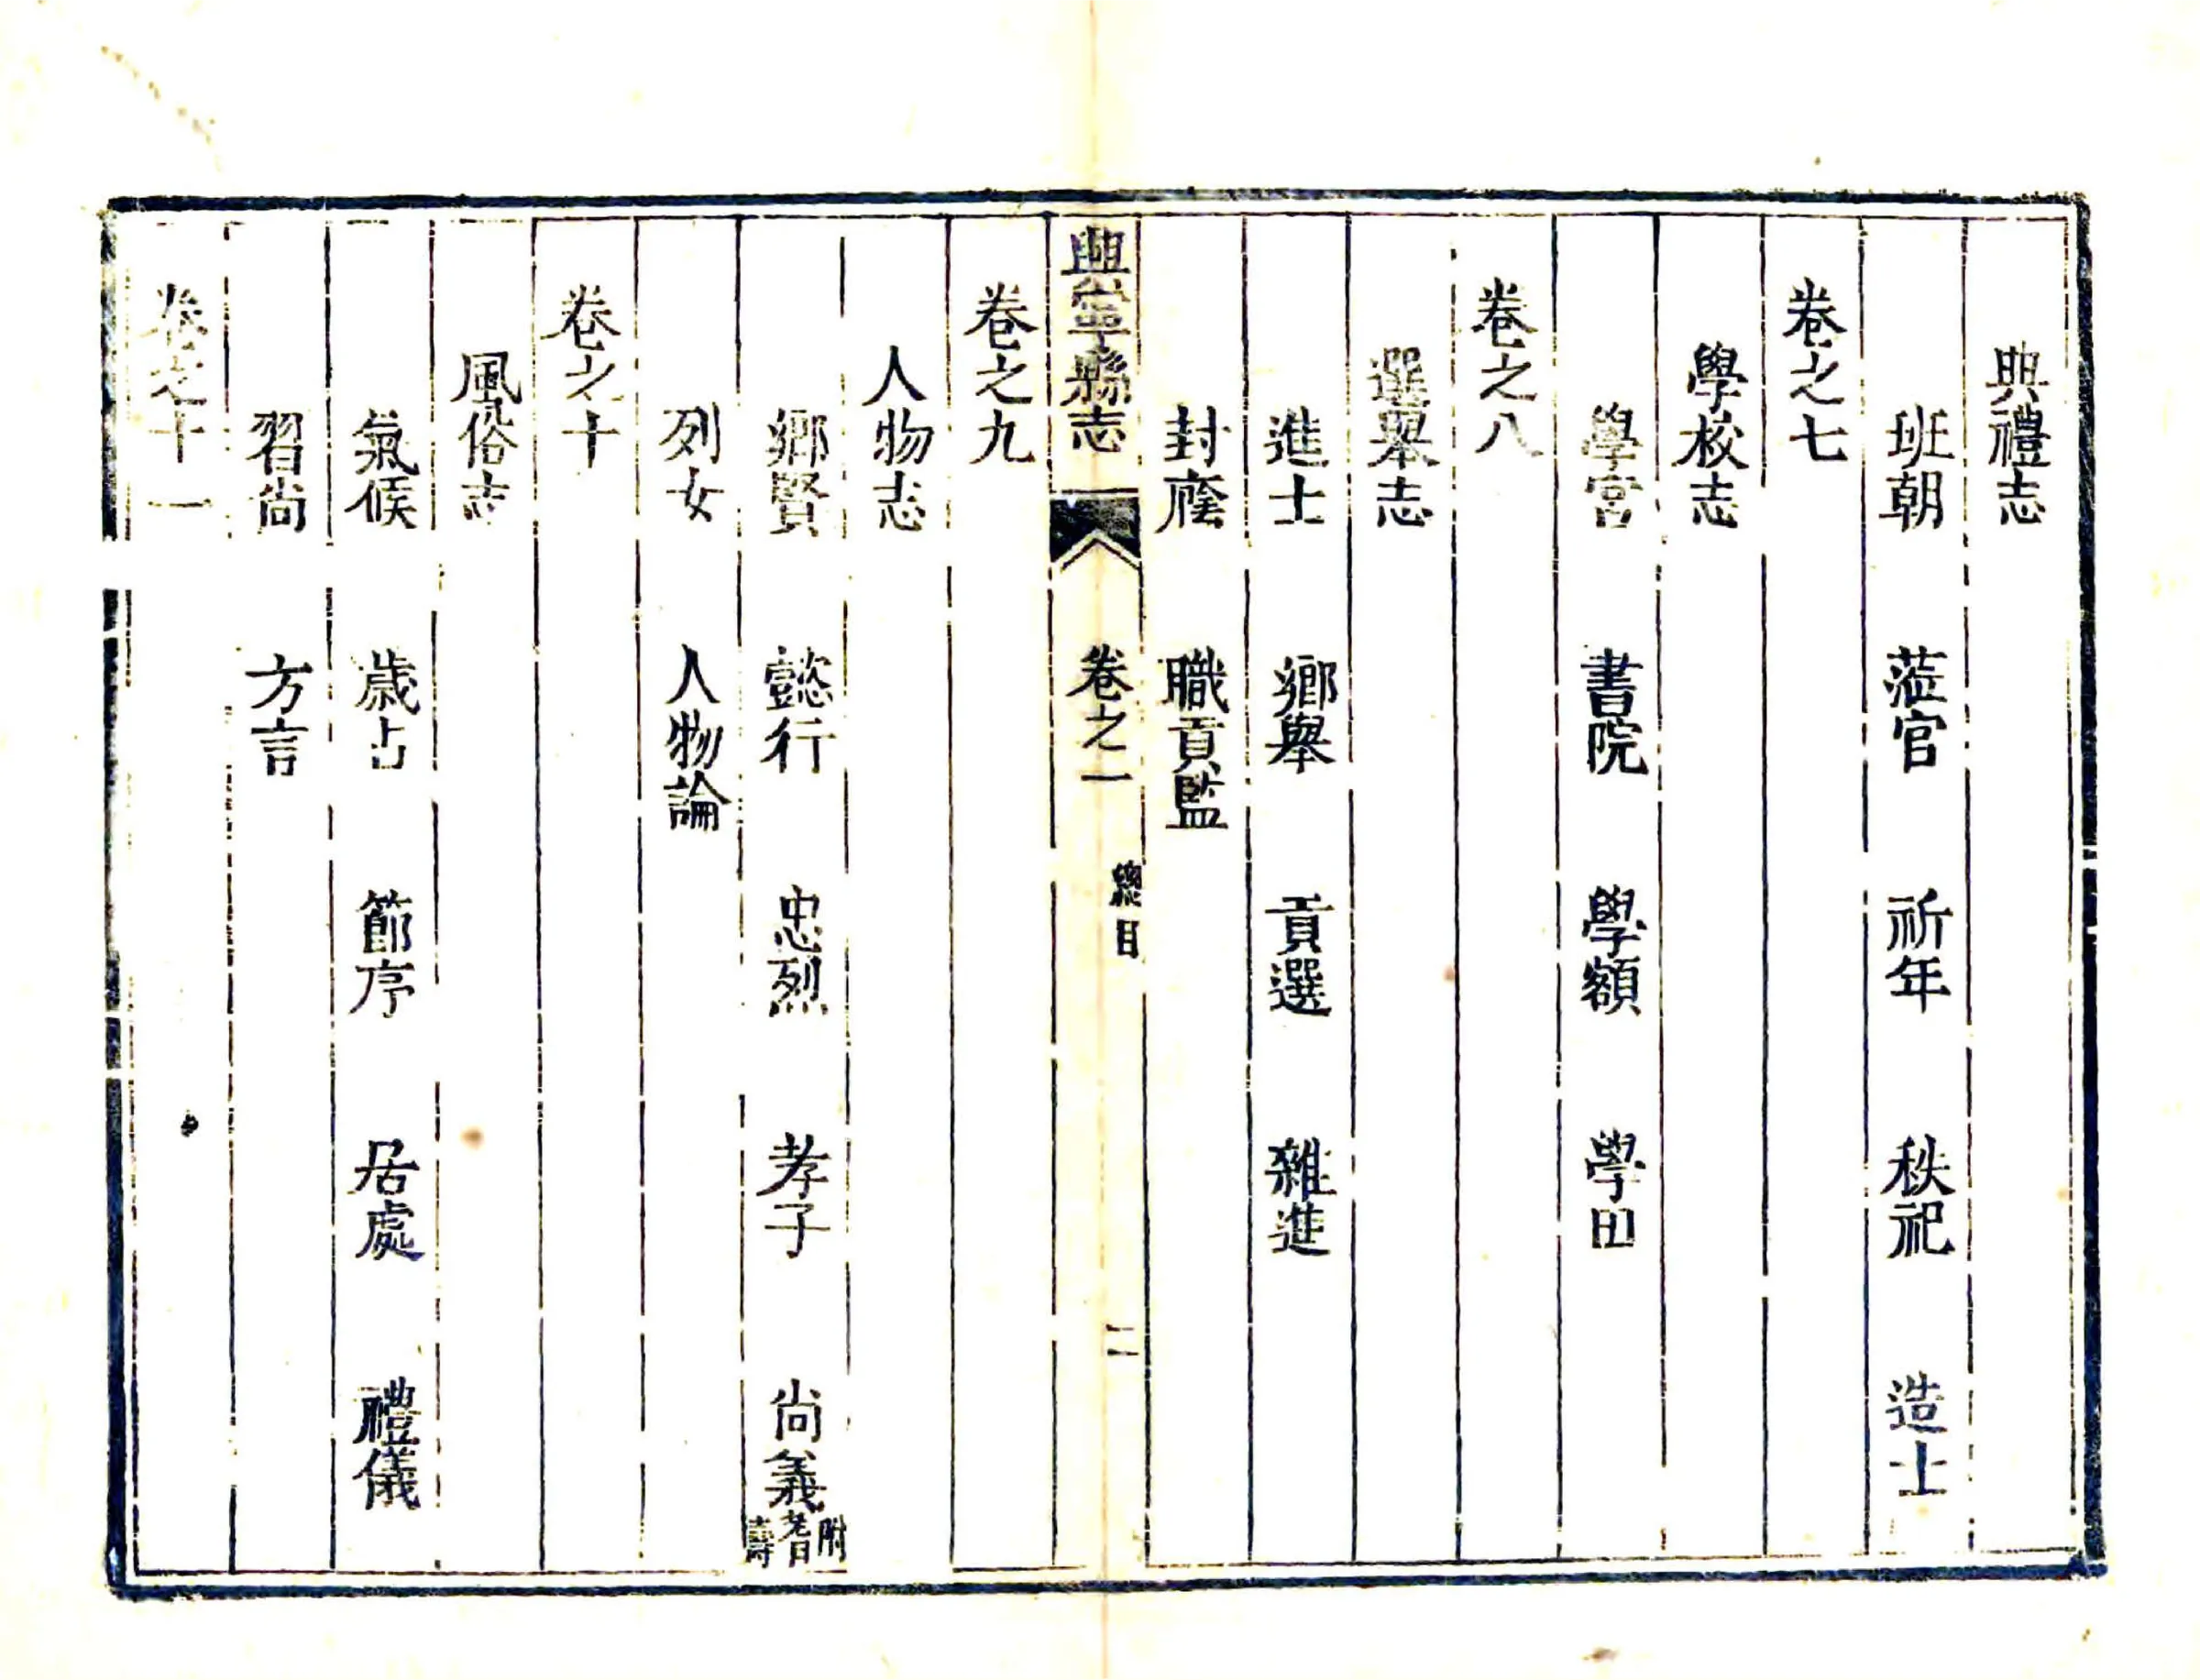 典禮志
班朝　蒞官　祈年　秩祀　造士
卷之七
學校志
學宮　書院　學額　學田
卷之八
選舉志
進士　鄉舉　貢選　雜進
封廕　職貢監
興寧縣志　卷之一　總目　二
卷之九
人物志
鄉賢　懿行　忠烈　孝子　尚義附耆壽
列女　人物論
卷之十
風俗志
氣候　歲占　節序　居處　禮儀
習尚　方言
卷之十一